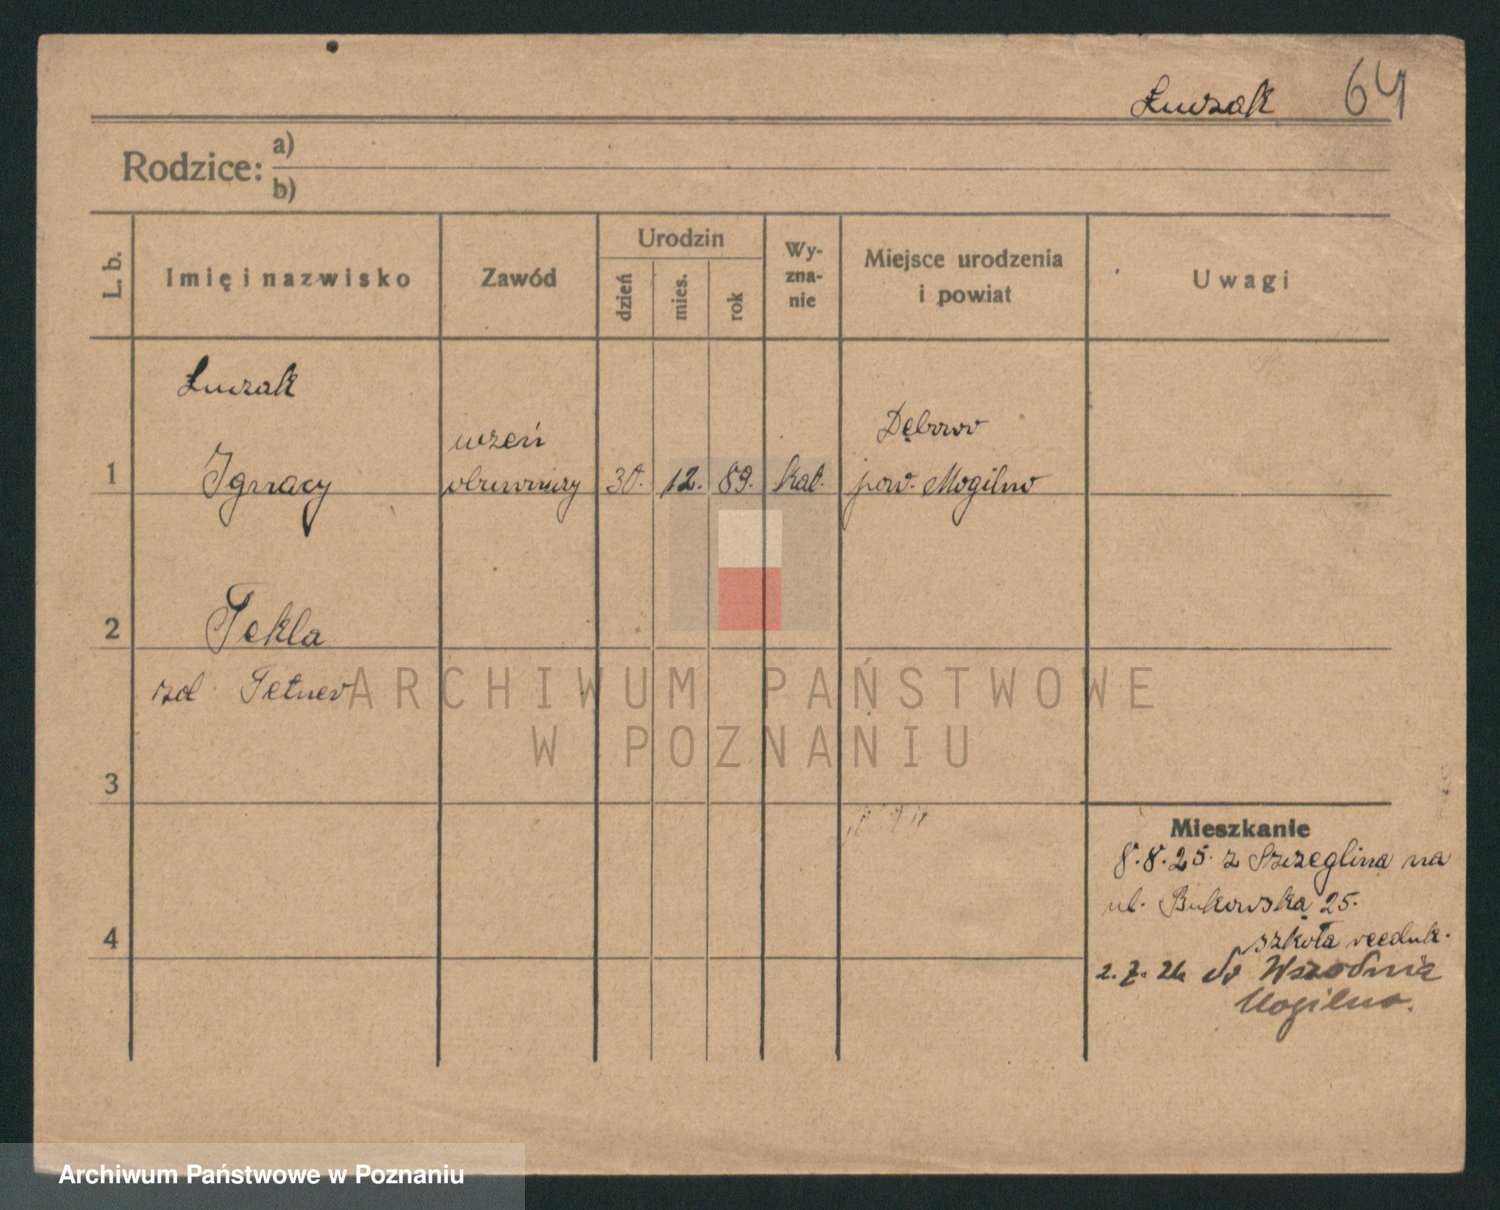 Łuczak 64
Rodzice: a)
b)
L. b.
Imię i nazwisko
Zawód
Urodzin
dzień
mies.
rok
Wy-
zna-
nie
Miejsce urodzenia
i powiat
Uwagi
Łuczak
1 Ignacy
uczeń
obuwniczy
30. 12. 89. kat.
Dębowo
pow. Mogilno
2 Tekla
Tetner
3
4
Mieszkanie
8.8.25. z Szczeglina na
ul. Bukowską 25.
szkoła reeduk.
2.7.26 do
Mogilno.
ARCHIWUM PAŃSTWOWE
W POZNANIU
Archiwum Państwowe w Poznaniu